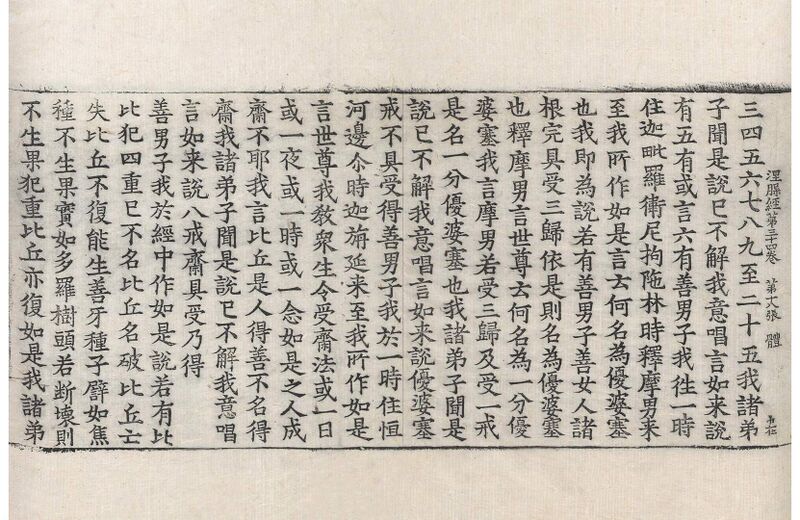 涅槃經第三十四卷 第丈張 體
三四五六七八九至二十五我諸弟
子聞是說已不解我意唱言如来說
有五有或言六有善男子我徃一時
住迦毗羅衛尼拘陁林時釋摩男来
至我所作如是言云何名為優婆塞
也我即為說若有善男子善女人諸
根完具受三歸依是則名為優婆塞
也釋摩男言世尊云何名為一分優
婆塞我言摩男若受三歸及受一戒
是名一分優婆塞也我諸弟子聞是
說已不解我意唱言如来說優婆塞
戒不具受得善男子我於一時住恒
河邊尒時迦旃延来至我所作如是
言世尊我教衆生令受齋法或一日
或一夜或一時或一念如是之人成
齋不耶我言比丘是人得善不名得
齋我諸弟子聞是說已不解我意唱
言如来說八戒齋具受乃得
善男子我於經中作如是說若有比
比犯四重已不名比丘名破比丘亡
失比丘不復能生善牙種子譬如焦
種不生果實如多羅樹頭若断壞則
不生果犯重比丘亦復如是我諸弟